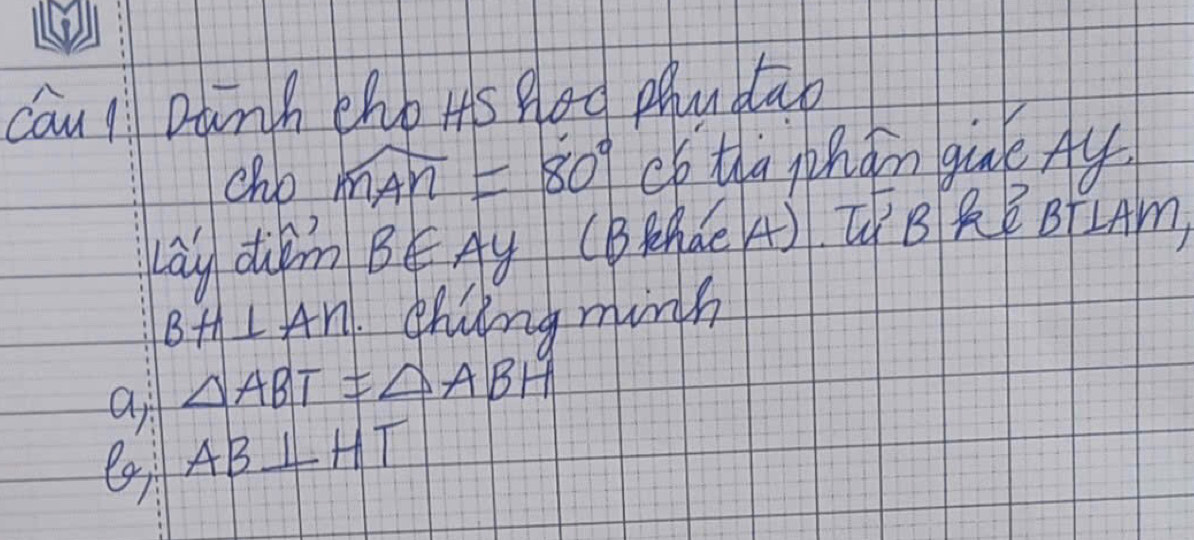 Câu 1 Dành cho HS học phụ đạo
Cho mAn = 80° có tia phân giác Ay.
Lấy điểm B ∈ Ay (B khác A). Từ B kẻ BT⊥AM,
BH ⊥ An. Chứng minh
a, △ABT = △ABH
b, AB ⊥ HT